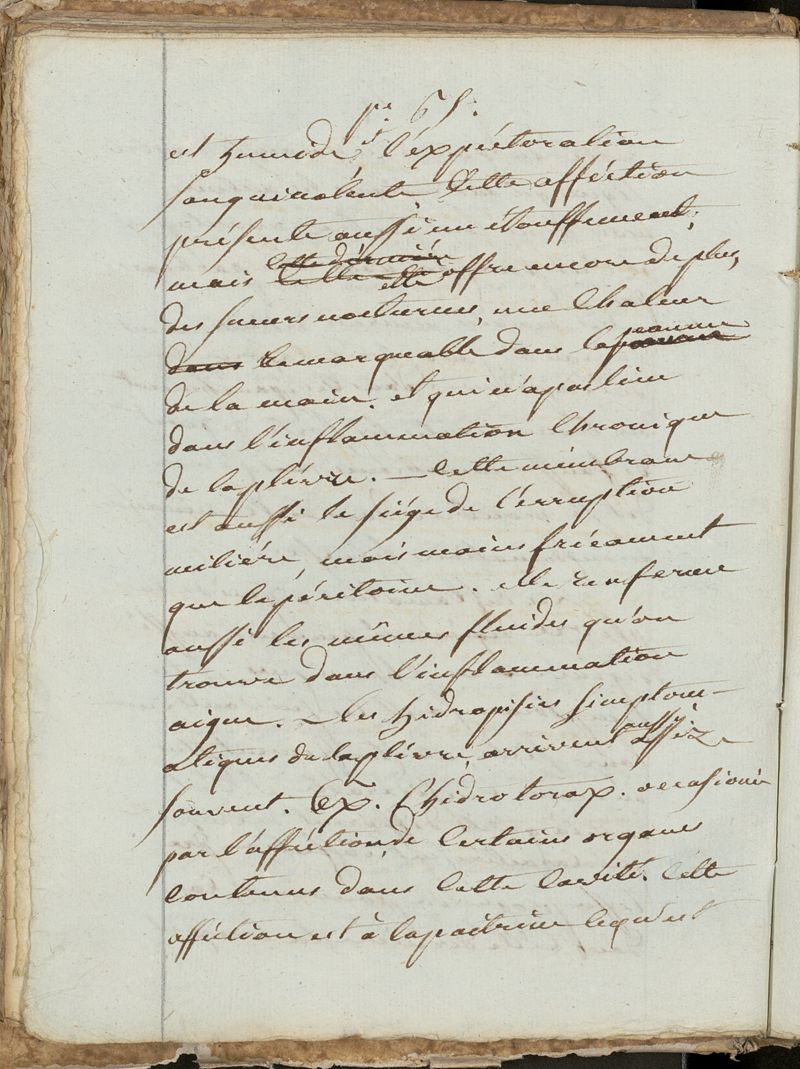 pe. 65.
est humide, l'expéctoration
sanguinolente cette afféction
présente aussi un étouffement,
mais cette dernier celle elle offre encore de plus,
des sueurs nocturnes, une chaleur
dans remarquable dans la peaume
de la main. et qui n'a pas lieu
dans l'inflammation chronique
de la plévre. — cette membrane
est aussi le siége de l'érruption
miliére, mais moins fréament
que le péritoine. elle renferme
aussi les mêmes fluides qu'on
trouve dans l'inflammation
aigue. — les hidropisies simptom-
atiques de la plévre, arrivent aussi assiz
souvent. Ex. l'hidrotorax. occasionné
par l'afféction de certains organes
contenus dans cette cavité. cette
afféction est à la poitrine ce qu'est